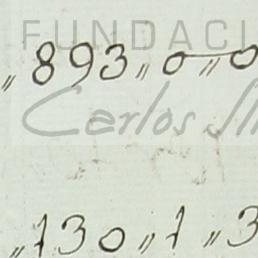 FUNDACI
„893„0„0
Carlos Sl
„130„1„3